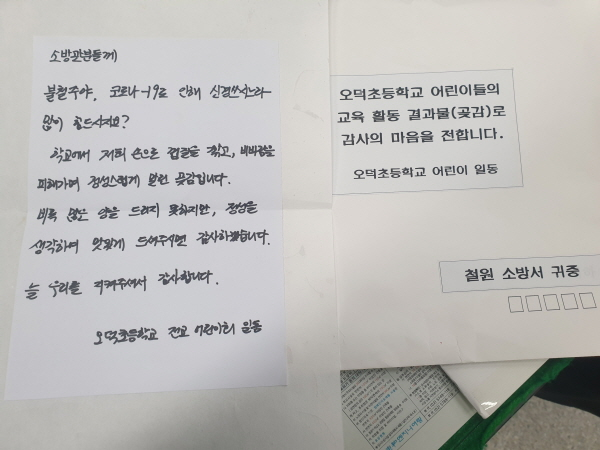 소방관분들께
불철주야, 코로나-19로 인해 신경쓰시느라
많이 힘드시지요?
학교에서 저희 손으로 껍질을 깎고, 비바람을
피해가며 정성스럽게 말린 곶감입니다.
비록 많은 양을 드리지 못하지만, 정성을
생각하여 맛있게 드여주시면 감사하겠습니다.
늘 우리를 지켜주셔서 감사합니다.
오덕초등학교 전교 어린이회 일동
오덕초등학교 어린이들의
교육 활동 결과물(곶감)로
감사의 마음을 전합니다.
오덕초등학교 어린이 일동
철원 소방서 귀중